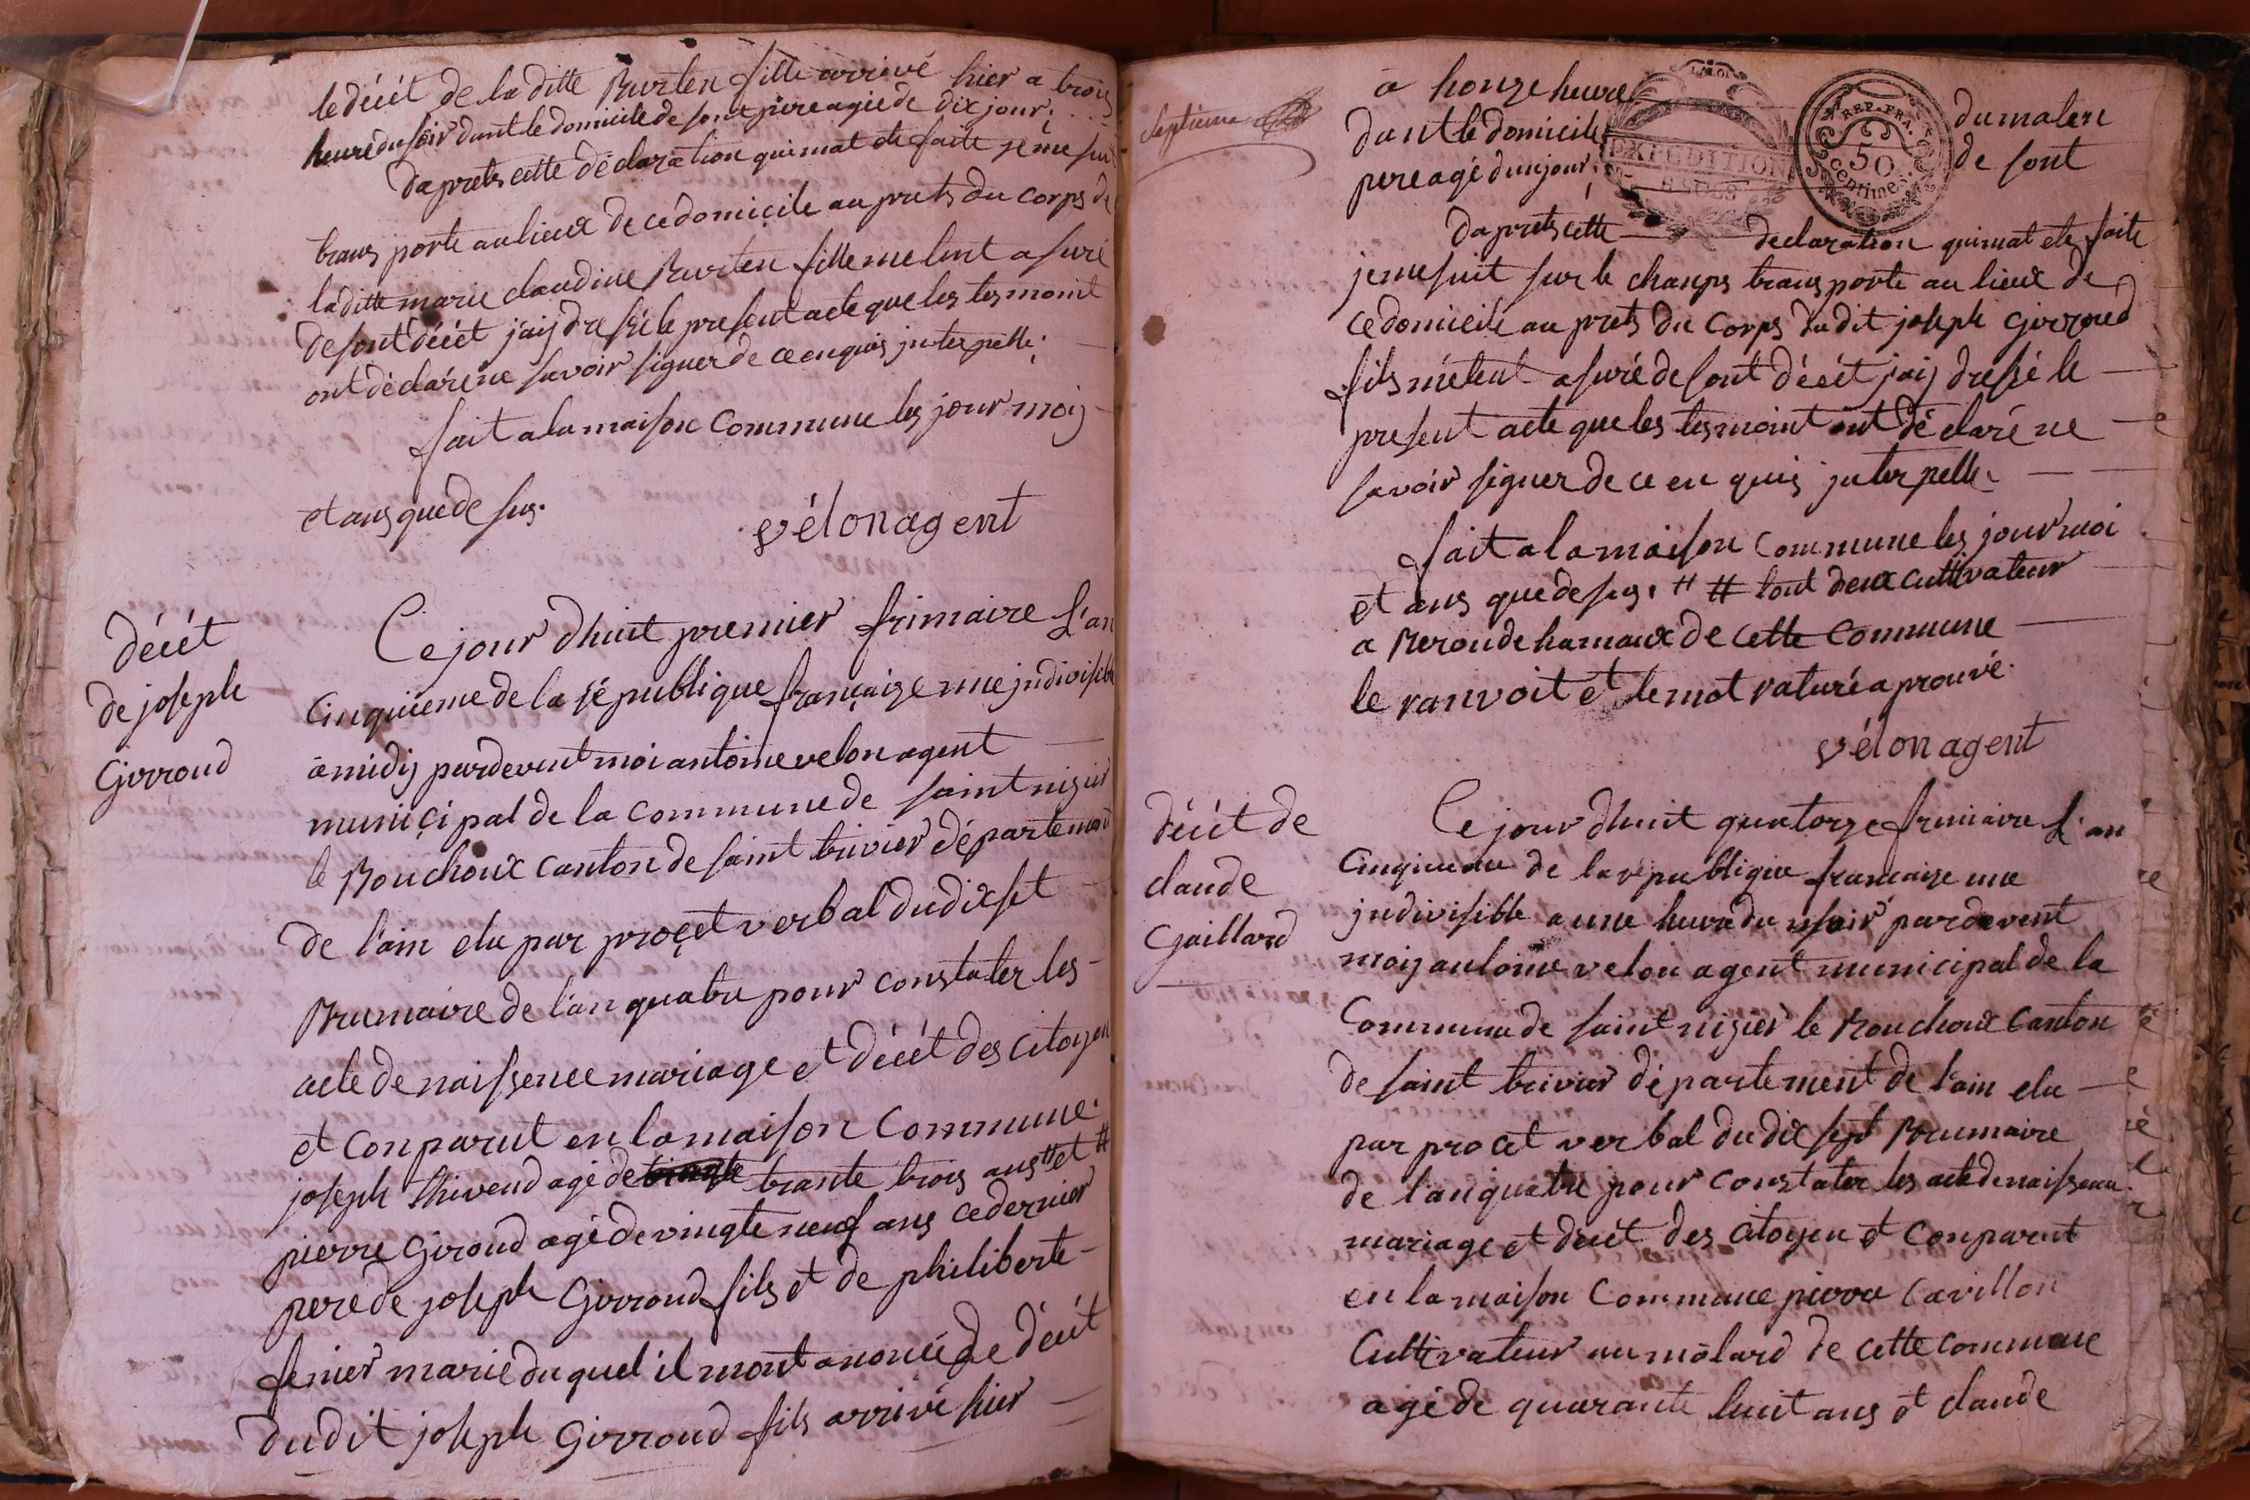 le décét de la ditte Burten fille arrivé hier a trois
heure du soir dant le domicile de sont pere agie de dix jour.
daprets cette déclaration qui mat ete faite je me suit
trans porte au lieux de ce domicile au prets du corps de
la ditte marie claudine Burten fille me lent asuré
de sont décét j'aij dressé le present acte que les tesmoint
ont déclaré ne savoir signer de ce enquis interpellé.
fait a la maison commune les jour moij
et ans que de sus.
vélon agent
décét
de joseph
Girroud
Ce jour dhuit premier frimaire l'an
cinquieme de la république françaize une jndivisible
a midij pardevent moi antoine velon agent
municipal de la commune de saint nizier
le Bouchoux canton de saint trivier département
de l'ain elu par procet verbal du dix set
Brumaire de l'an quatre pour constater les
acte de naissence mariage et décét des citoyen
et conparut en la maison commune.
joseph thivend agé de vingte trante trois ans # et #
pierre Giroud agé de vingte neuf ans ce dernier
pere de joseph Girroud fils et de philiberte
fenier marie du quel il mont anoncé le décét
dudit joseph Girroud fils arrivé hier
septieme
a honze heure du maten
dant le domicile de sont
pere agé dun jour;
EXPEDITION
REP. FRA.
50
centimes
daprets cette declaration qui mat ete faite
je me suit sur le chanps trans porte au lieux de
ce domicile au prets du corps dudit joseph Girroud
fils métent asuré de sont décét jaij dressé le
present acte que les tesmoint ont déclaré ne
savoir signer de ce en quis jnterpellé
fait a la maison commune les jour moi
et ans que de sus. # # tout deux cultivateur
a Beronde hamaux de cette commune
le ranvoit et le mot raturé aprouvé.
vélon agent
décét de
claude
Gaillard
Ce jour dhuit quatorze frimaire l'an
cinquieme de la republique francaize une
jndivisible a une heure du soir pardevent
moij antoine velon agent municipal de la
commune de saint nizier le Bouchoux canton
de saint trivier département de l'ain elu
par procet verbal du dix sept Brumaire
de l'an quatre pour constater les acte de naissence
mariage et décét des citoyen et conparut
en la maison commune pierre Cavillon
cultivateur au mólard de cette commune
agé de quarante huit ans et claude